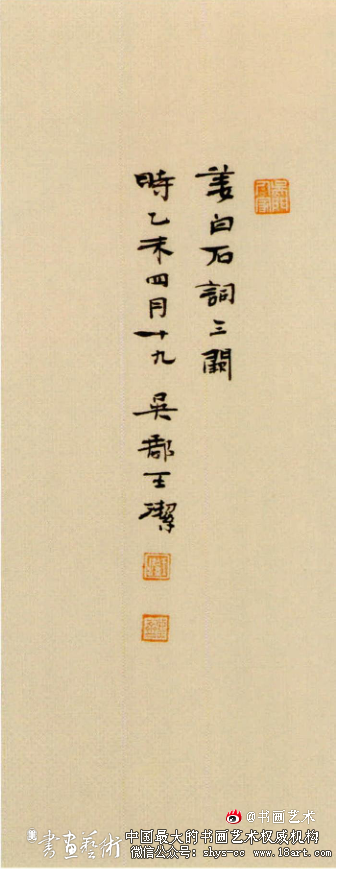 姜白石詞三闋
時乙未四月十九 吳郡王潔
@书画艺术
書畫藝術
中国最大的书画艺术权威机构
微信公众号：shys-cc www.18art.com